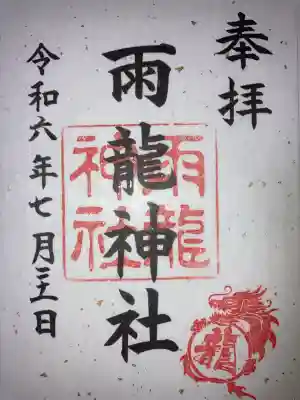 奉拝
雨龍神社
雨龍
神社
龍
令和六年七月三十一日